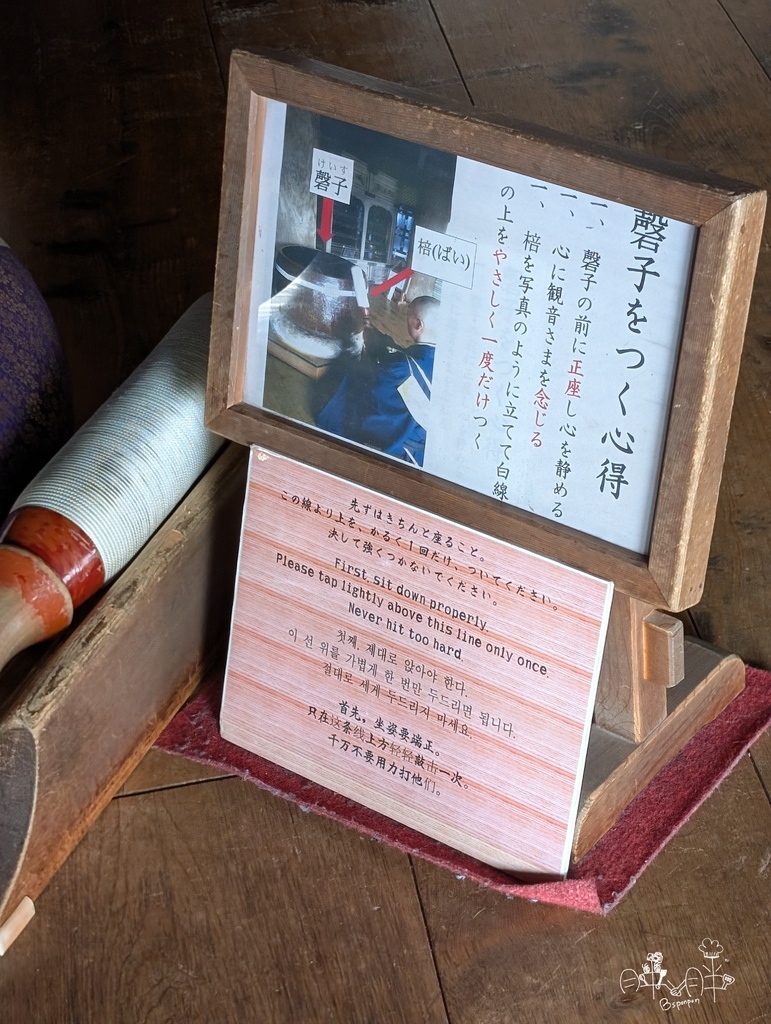 磬子をつく心得
一、磬子の前に正座し心を静める
一、心に観音さまを念じる
一、棓を写真のように立てて白線
の上をやさしく一度だけつく
けいす
磬子
棓(ばい)
先ずはきちんと座ること。
この線より上を、かるく1回だけ、ついてください。
決して強くつかないでください。
First, sit down properly.
Please tap lightly above this line only once.
Never hit too hard.
첫째, 제대로 앉아야 한다.
이 선 위를 가볍게 한 번만 두드리면 됩니다.
절대로 세게 두드리지 마세요.
首先，坐姿要端正。
只在这条线上方轻轻敲击一次。
千万不要用力打他们。
Bsponpon